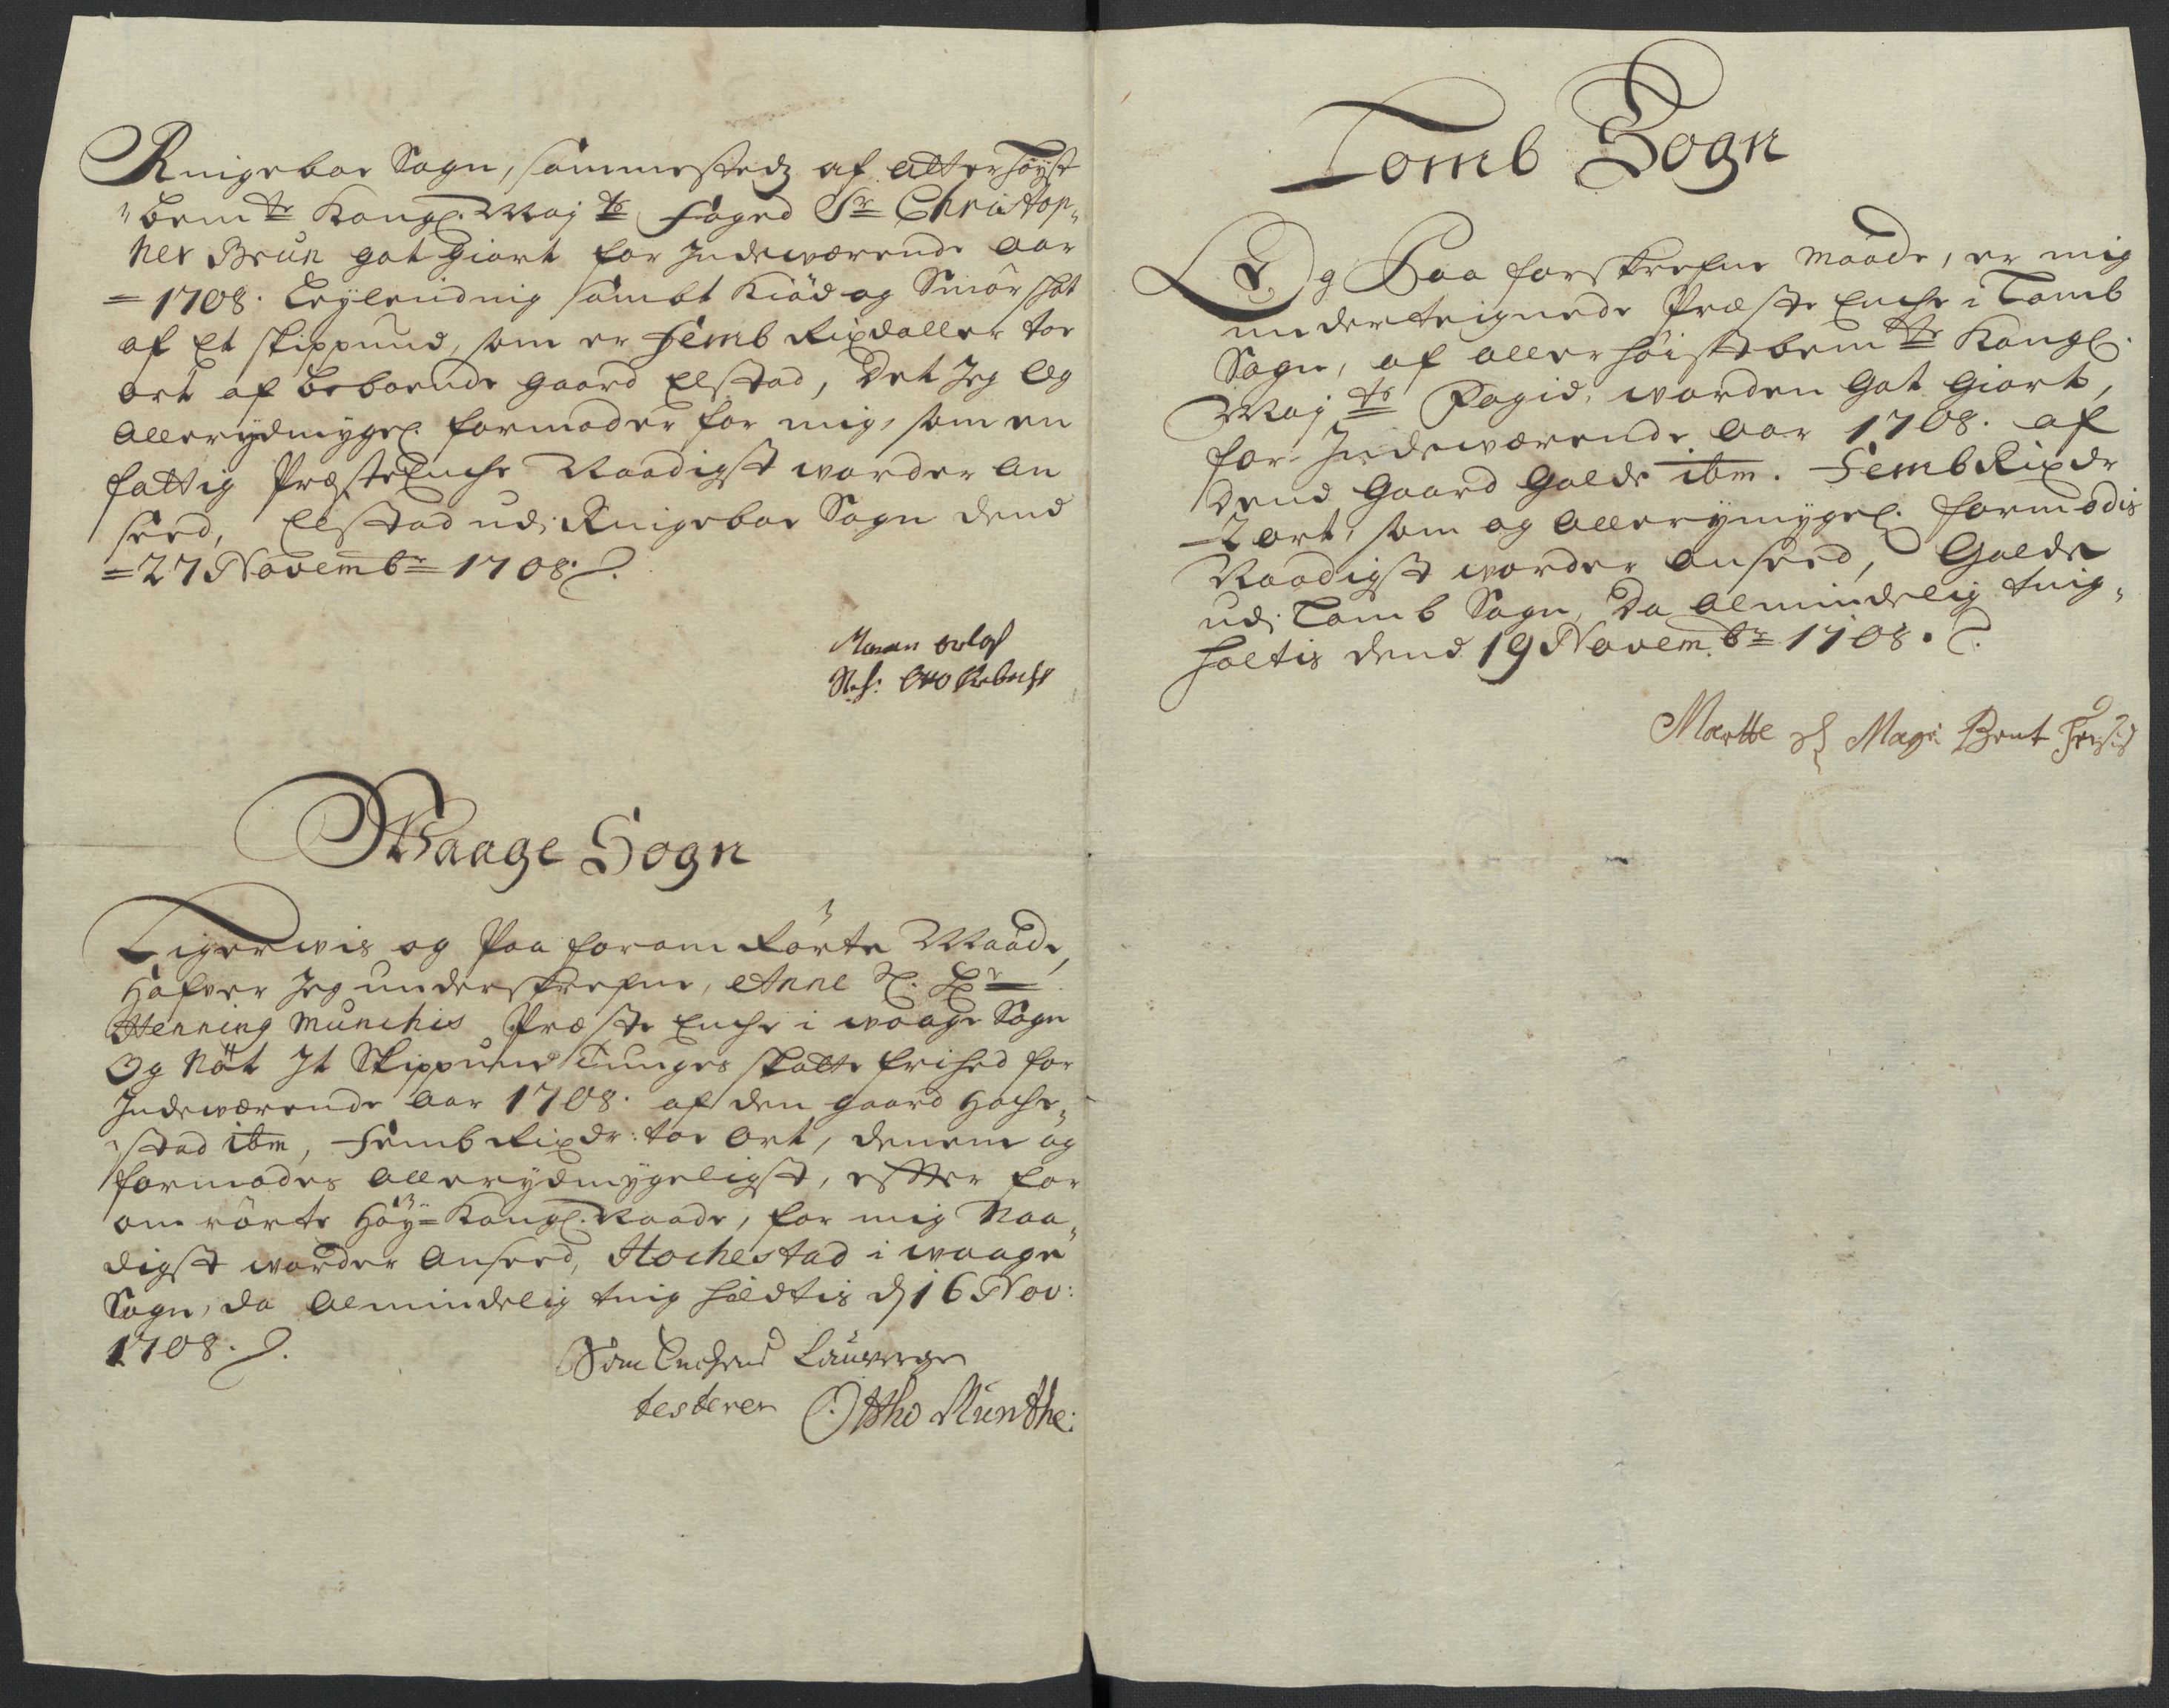 Ringeboe Sogn, sammestedz af allerhöyst
bemte Kongl. Mayts Foged Sr Christop-
her Brun got giort for Indeværende Aar
1708. Leylending sambt Kiöd og Smör shat
af Et skippund, som er Femb Rixdaller toe
ort af beboende gaard Elstad, Det Jeg Og
Allerydmygel. formoder for mig, som en
fattig Præste Enche Naadigst vorder An
seed, Elstad udi Ringeboe Sogn dend
27 Novembr 1708.
Maren
Sl. Otto
Waage Sogn
Ligerwis og Paa foromrörte Maade,
Hafver Jeg underskrefne, Anne Sl. Hr
Henning Munchis Præste Enche i Waage Sogn
Og Nöt It Skippund Tunges skatte frihed for
Indeværende Aar 1708. af den gaard Hache-
stad ibm, Femb Rixdr: toe Ort, denem og
formodes Allerydmygeligst, effter for
om rörte Höy-Kongl. Naade, for mig Naa-
digst worder Anseed, Hochestad i Waage
Sogn, da Almindelig ting holdtis d 16 Nov:
1708.
Som Enchens Laugverge
testerer Ottho Munthe:
Tomb Sogn
Og Paa forskrefne Maade, er mig
underteignede Præste Enche i Tomb
Sogn, af allerhöistbemte Kongl.
Mayts Fogid, worden Got Giort,
for Indeværende Aar 1708. af
Dend Gaard Golde ibm. Femb Rixdr
2 ort, som og Allerymygel. formodis
Naadigst worder Anseed, Golde
udi Tomb Sogn, Da Almindelig ting-
holtis dend 19 Novembr 1708.
Marthe Sl Mag: Bent